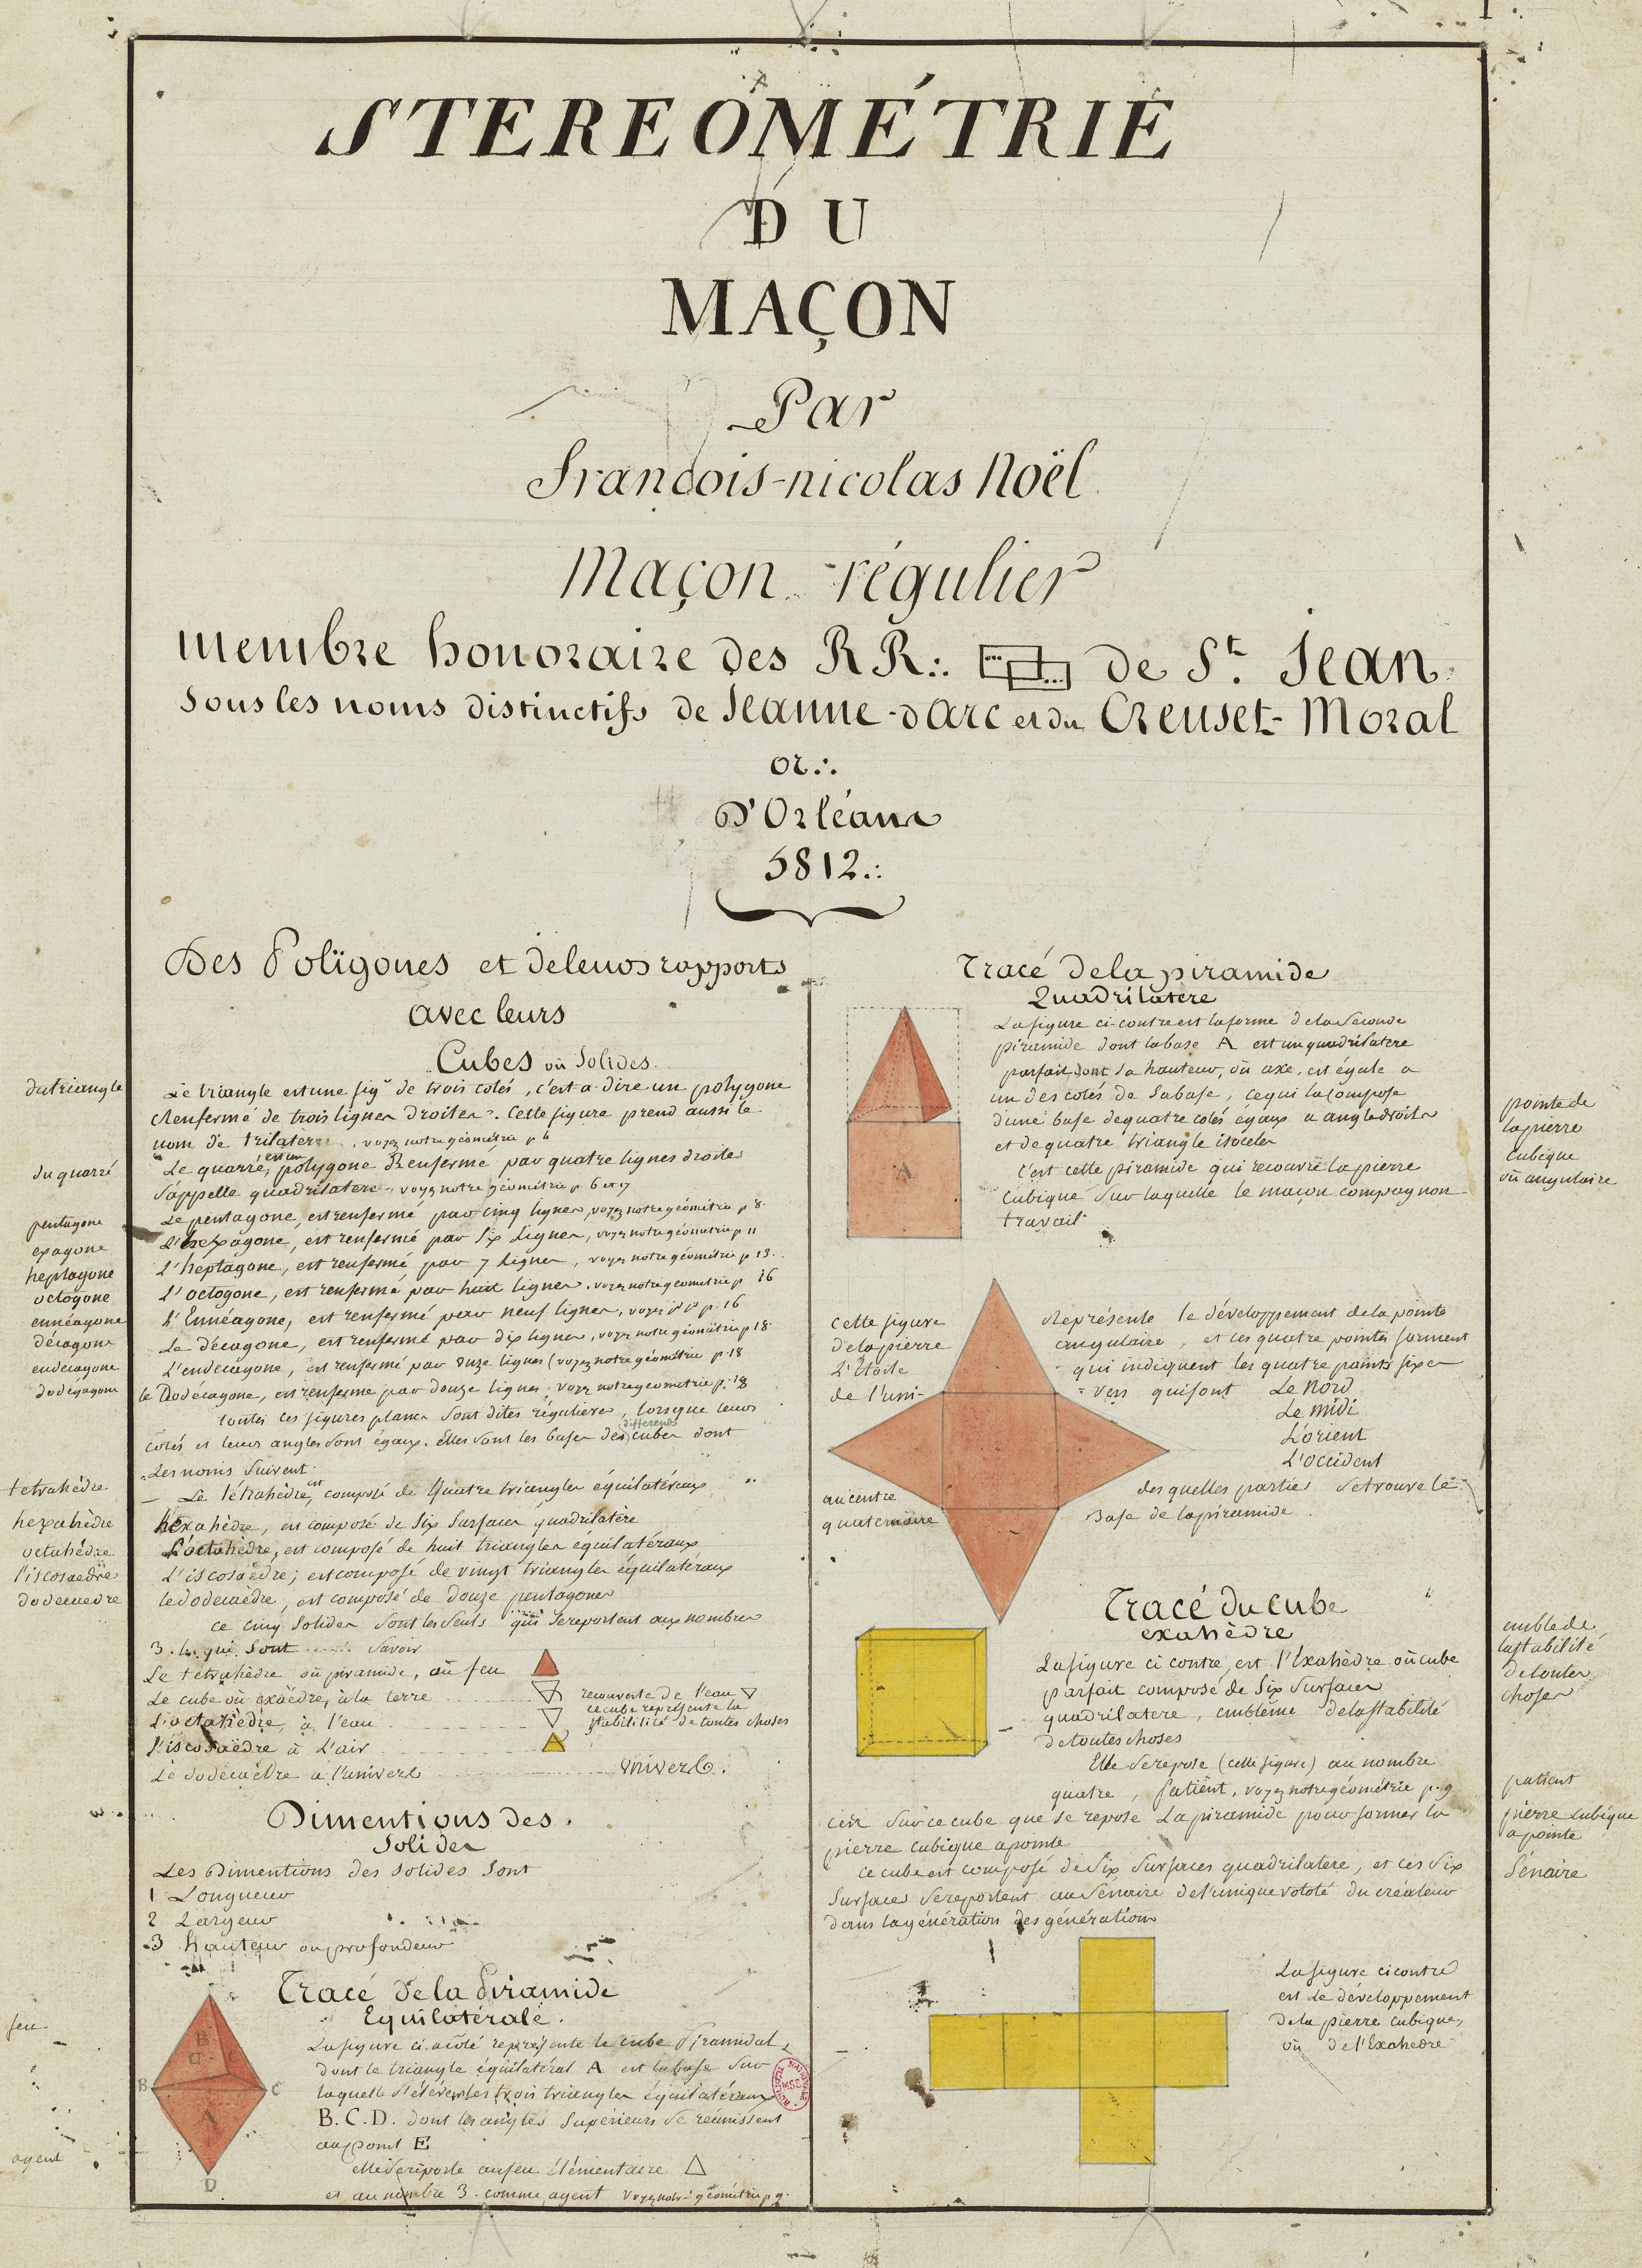 STEREOMÉTRIE
DU
MAÇON
Par
françois-nicolas Noël
Maçon régulier
membre honoraire des RR∴ de St. Jean
Sous les noms distinctifs de Jeanne-d'arc et du Creuset-Moral
or∴
D'Orléans
5812∴
Des Polïgones et de leurs rapports
avec leurs
Cubes où Solides
du triangle
Le triangle est une figr de trois cotés, c'est a-dire un polygone
Renfermé de trois lignes droites. Cette figure prend aussi le
nom de trilatere, voyez notre géométrie p 4
du quarré
Le quarré, est un polygone Renfermé par quatre lignes droites
s'appelle quadrilatere, voyez notre géométrie p 6 et 7
pentagone
Le pentagone, est renfermé par cinq lignes, voyez notre géométrie p 8
exagone
L'hexagone, est renfermé par Six Lignes, voyez notre géometrie p 11
heptagone
L'heptagone, est renfermé par 7 lignes, voyez notre géométrie p 13.
octogone
L'octogone, est renfermé par huit lignes, voyez notre géometrie p 16
ennéagone
L'Ennéagone, est renfermé par neuf lignes, voyez p. 16
décagone
Le décagone, est renfermé par dix lignes, voyez notre géométrie p 18
endecagone
L'endécagone, est renfermé par onze lignes (voyez notre géométrie p. 18
dodégagone
le Dodécagone, est renfermé par douze lignes, voyez notre géometrie p. 18
toutes ces figures planes sont dites régulieres, lorsque leurs
cotés et leurs angles sont égaux. Elles sont les bases des différents cubes dont
Les noms suivent.
tetrahèdre
Le Tétrahèdre, est composé de Quatre triangles équilatéraux
hexahèdre
hexahèdre, est composé de Six Surfaces quadrilatère
octahèdre
L'octahèdre, est composé de huit triangles équilatéraux
l'iscosaèdre
L'iscosaèdre, est composé de vingt triangles équilatéraux
dodecaedre
le dodecaèdre, est composé de douze pentagones
ce cinq solides sont les seuls qui se reportent aux nombres
3. 4. qui sont savoir
Le tétrahèdre où piramide, aü feu
Le cube où exäèdre, à la terre
recouverte de l'eau
ce cube représente la
stabilité de toutes choses
L'octahèdre, à l'eau
l'iscosaèdre à L'air
Le dodecaèdre à l'univers
univers.
Dimentions des
Solides
Les Dimentions des Solides Sont
1 Longueur
2 Largeur
3 Hauteur ou profondeur
Tracé de la Piramide
Equilatérale.
feu
La figure ci a côté représente le cube Piramidal,
dont le triangle équilatéral A est la base sur
laquelle s'élévent les trois triangles équilatéraux
B. C. D. dont les angles supérieurs se réunissent
au point E
agent
elle se reporte au feu élémentaire
et au nombre 3. comme agent voyez notre géométrie p 9.
B
D
C
B
C
A
D
Tracé de la piramide
Quadrilatère
La figure ci-contre est la forme de la Seconde
piramide dont la base A est un quadrilatere
parfait, dont sa hauteur, où axe, est égale a
un des cotés de Sa base, ce qui la compose
d'une base de quatre cotés égaux a angle droits
et de quatre triangle isoceles
A
pointe de
la pierre
Cubique
où angulaire
C'est cette piramide qui recouvre la pierre
Cubique sur laquelle le maçon compagnon
travail
cette figure
de la pierre
L'Etoile
de l'uni-
Représente le développement de la pointe
angulaire, et ces quatre pointes forment
qui indiquent les quatre points fixes
vers qui sont
Le Nord
Le midi
L'orient
L'occident
au centre
quaternaire
des quelles parties se trouve le
Base de la piramide.
Tracé du Cube
exahèdre
La figure ci contre, est l'Exahèdre où cube
parfait composé de Six Surfaces
quadrilatere, emblême de la stabilité
de toutes choses
embleme de
la stabilité
de toutes
choses
Elle se repose (cette figure) au nombre
quatre, Patient, voyez notre géométrie p. 9
patient
C'est sur ce cube que se repose La piramide pour former la
pierre cubique a pointe
pierre cubique
a pointe
ce cube est composé de Six Surfaces quadrilatere, et ces Six
Surfaces se reportent au Senaire de l'unique volonté du créateur
dans la génération des générations
Sénaire
La figure ci contre
est Le développement
de la pierre cubique,
où de l'Exahèdre